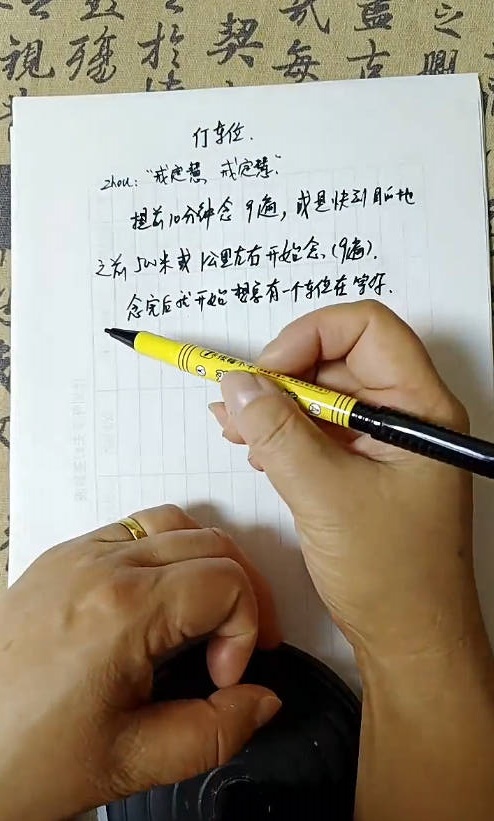 仃车位.
zhou:"戒定慧 戒定慧."
提前10分钟念 9遍,或是快到目的地
之前500米或1公里左右开始念.(9遍).
念完后就开始想象有一个车位在等你.
視
於
契
每
盖
古
之